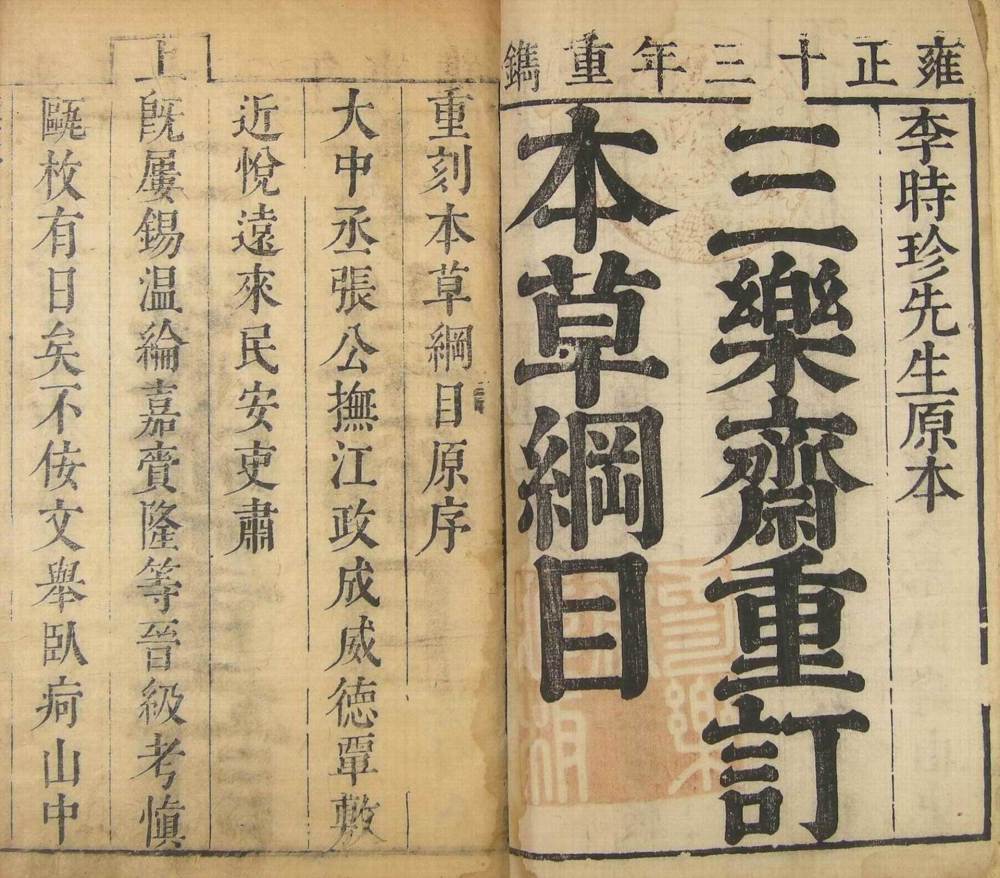 雍正十三年重鐫
李時珍先生原本
三樂齋重訂
本草綱目
重刻本草綱目原序
大中丞張公撫江政成威德覃敷
近悅遠來民安吏肅
上
既屢錫温綸嘉賚隆等晉級考慎
甌枚有日矣不佞文舉臥疴山中